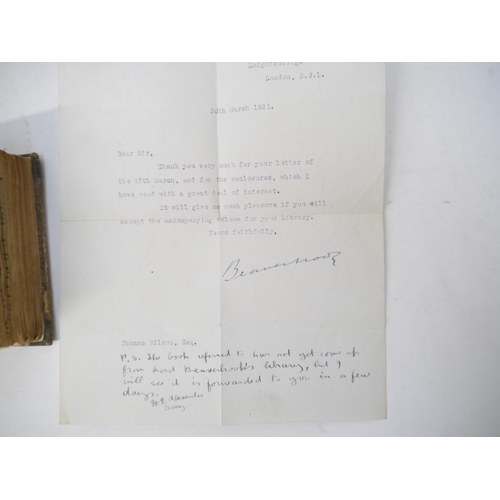 Knightsbridge,
London, S.W.1.
30th March 1921.
Dear Sir,
Thank you very much for your letter of
the 27th March, and for the enclosures, which I
have read with a great deal of interest.
It will give me much pleasure if you will
accept the accompanying volume for your Library.
Yours faithfully,
Beaverbrook
Thomas Wilson, Esq.
P.S. The book referred to has not yet come up
from Lord Beaverbrook's library, but I
will see it is forwarded to you in a few
days.
Alexander
Secretary